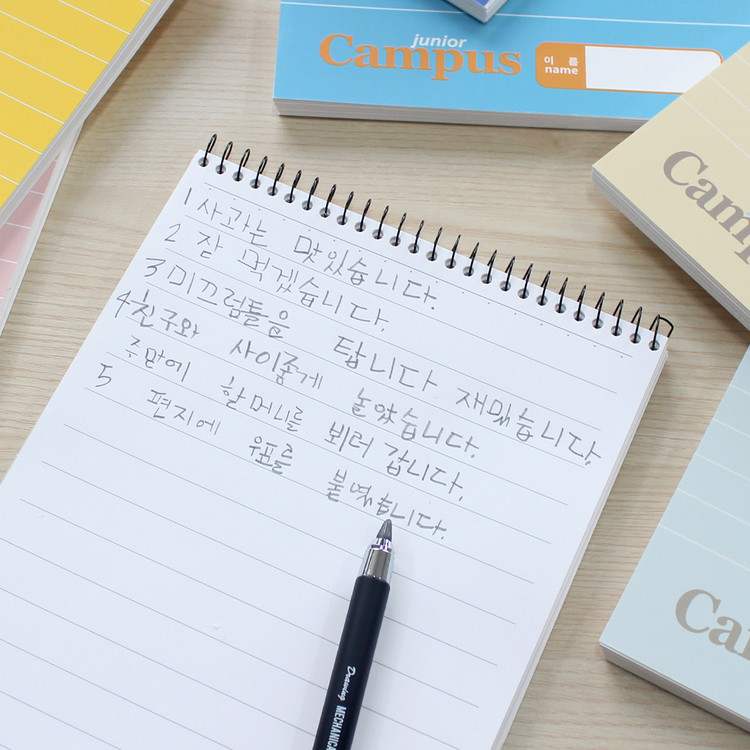 junior
Campus
이름
name
Camp
Ca
1 사과는 맛있습니다.
2 잘 먹겠습니다.
3 미끄럼틀을 탑니다 재밌습니다.
4 친구와 사이좋게 놀았습니다.
주말에 할머니를 뵈러 갑니다.
5 편지에 우표를 붙였습니다.
Drawing MECHANICA